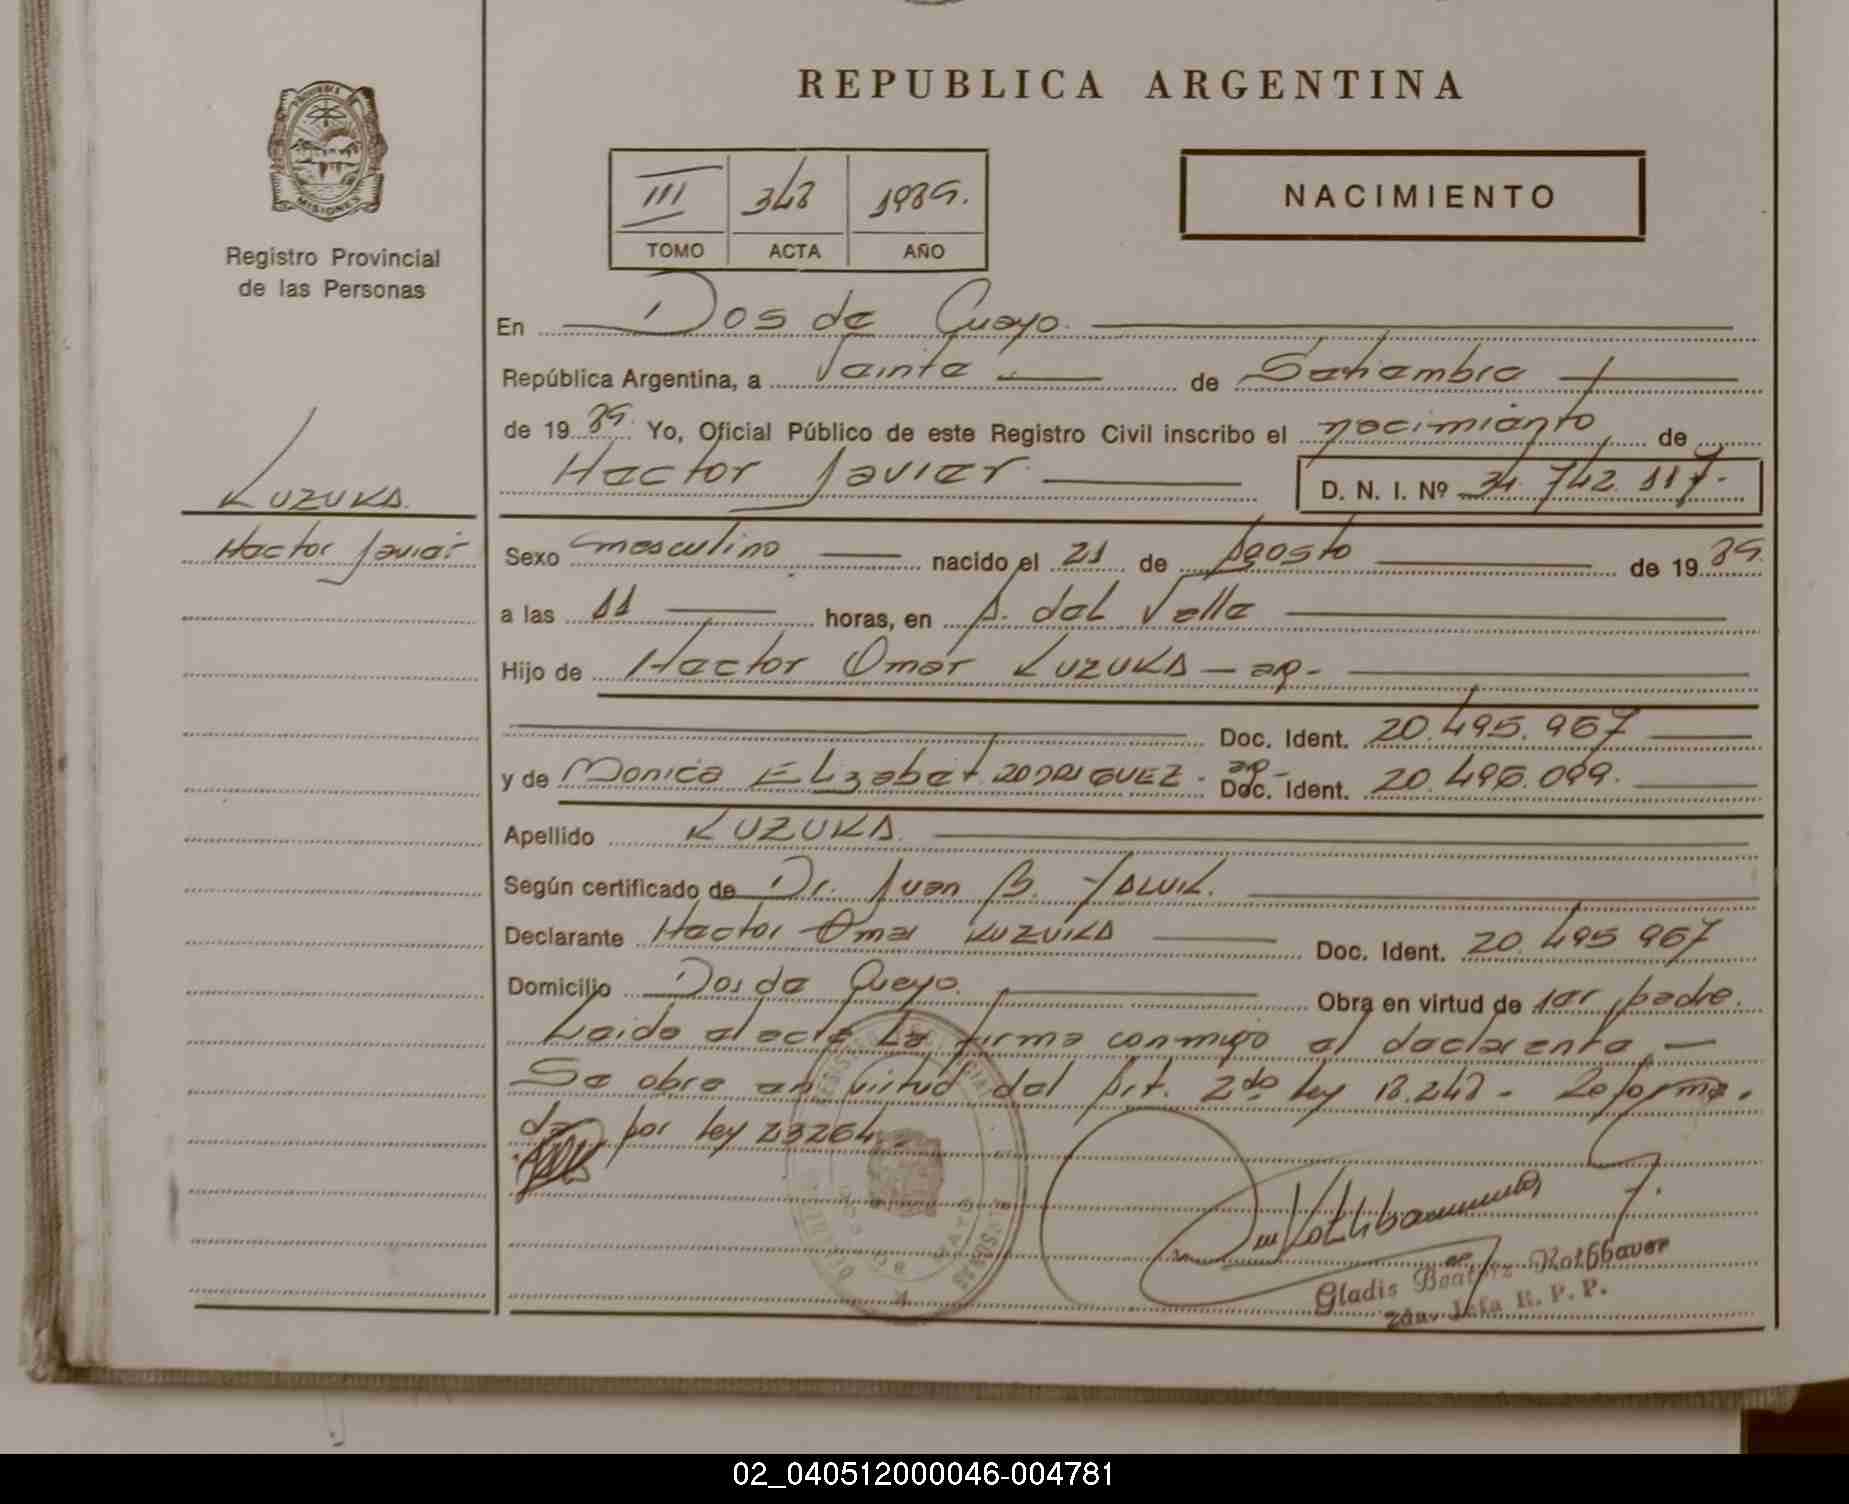 REPUBLICA ARGENTINA
PROVINCIA DE
MISIONES
Registro Provincial
de las Personas
III 348 1989.
TOMO ACTA AÑO
NACIMIENTO
En Dos de Mayo.
República Argentina, a Veinte de Setiembre
de 1989. Yo, Oficial Público de este Registro Civil inscribo el nacimiento de
Hector Javier D. N. I. Nº 34.742.117.-
KUZUKA.
Hector Javier
Sexo masculino nacido el 21 de Agosto de 1989.
a las 11 horas, en A. del Valle
Hijo de Hector Omar KUZUKA - ar-
Doc. Ident. 20.495.967
y de Monica Elizabet RODRIGUEZ. ar- Doc. Ident. 20.496.099.
Apellido KUZUKA.
Según certificado de Dr. Juan B. YALUK.
Declarante Hector Omar KUZUKA Doc. Ident. 20.495 967
Domicilio Dos de Mayo. Obra en virtud de ser padre.
Leida el acta la firma conmigo el declarante, -
Se obra en virtud del Art. 2do ley 18.248 - Reforma.
da por ley 23264.
Gladis Beatriz Rothbauer
Jefa R. P. P.
02_040512000046-004781